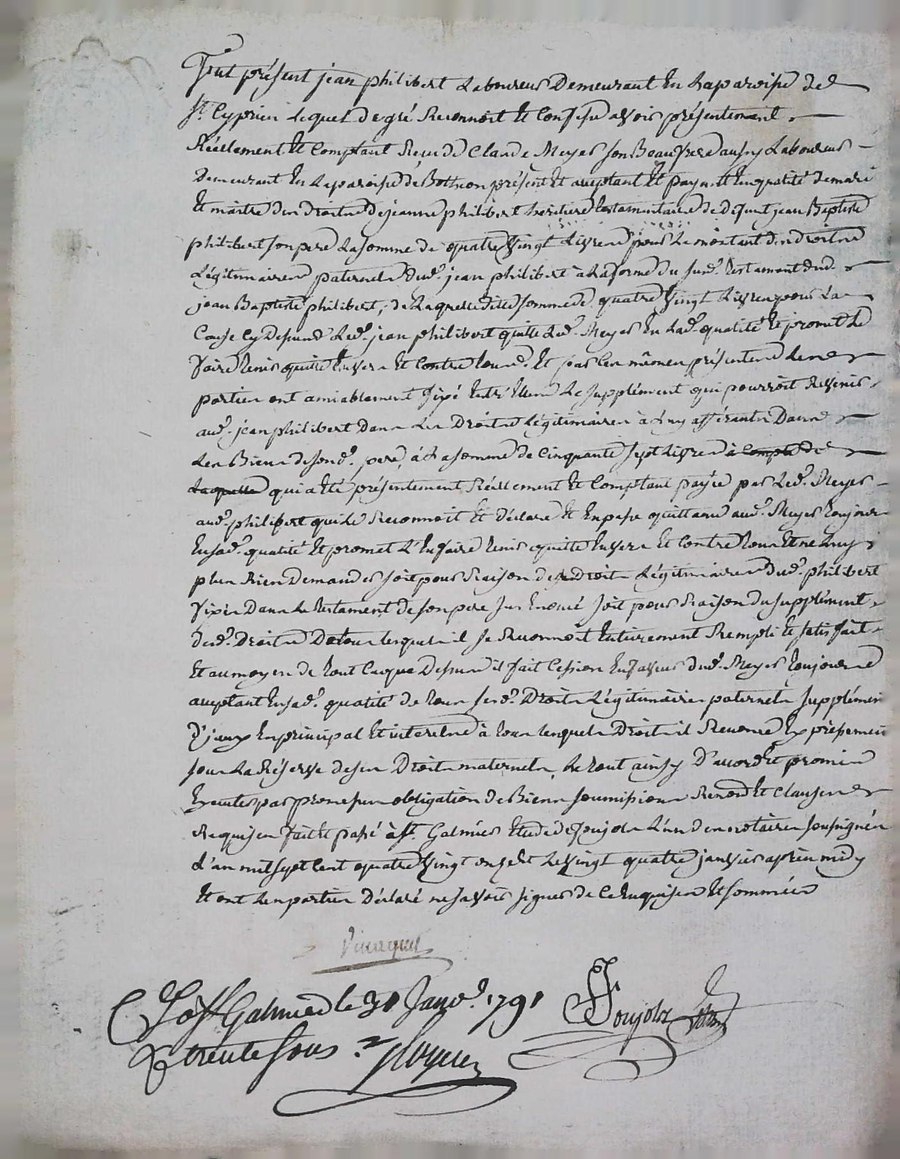 Fut présent jean philibert Laboureur Demeurant En La paroisse de
St. Cyprien Lequel de gré Reconnoit Et Confesse avoir présentement
Réellement Et Comptant Receu de Claude Meyer son Beaufrere aussy Laboureur
Demeurant En La paroisse de Bothéon présent Et acceptant Et payant En qualité de mari
Et maitre des droits de jeanne philibert héritière testamentaire de défunt jean Baptiste
philibert son pere La somme de quatre vingt Livres pour Le montant des droits
Légitimaires paternels dud. jean philibert à La forme du susd. testament dud.
jean Baptiste philibert; de Laquelle ditte somme de quatre vingt Livres pour La
Cause Cy Dessus Led. jean philibert quitte Led. Meyer En Lad. qualité Et promet Le
faire tenir quitte Envers Et Contre tous. Et par Ces mêmes présentes Les
parties ont amiablement fixé Entr'Elles Le Supplément qui pourroit Revenir
aud. jean philibert Dans Les Droits Légitimaires à Luy afférants Dans
Les Biens de sond. pere, à La somme de Cinquante sept Livres à Compte de
Laquelle qui a Eté présentement Réellement Et Comptant payée par Led. Meyer
aud. philibert qui Le Reconnoit Et déclare Et En passe quittance aud. Meyer toujours
En sad. qualité Et promet L'En faire tenir quitte Envers Et Contre tous Et ne Luy
plus Rien Demander soit pour Raison des Droits Légitimaires dud. philibert
fixés Dans Le testament de son pere sus Enoncé soit pour Raison du supplément
desd. Droits De tous Lesquels il se Reconnoit Entierement Rempli Et satisfait
Et au moyen de tout Ce que Dessus il fait Cession En faveur dud. Meyer toujours
acceptant En sad. qualité de tous sesd. Droits Légitimaires paternels supplément
d'jceux En principal Et interets à tous Lesquels Droits il Renonce Expressement
sous La Réserve de ses Droits maternels, Le tout ainsy D'accord Et promis
Executer par promesses obligation de Biens soumissions Renon. Et Clauses
Requises fait Et passé à St. Galmier Etude de Poujola L'un des notaires soussignés
L'an mil sept Cent quatre vingt onze Le vingt quatre janvier après midy
Et ont Les parties Déclaré ne savoir signer de Ce Enquises Et sommées
Co. à St. Galmier le 31 Janv. 1791
R trente sous